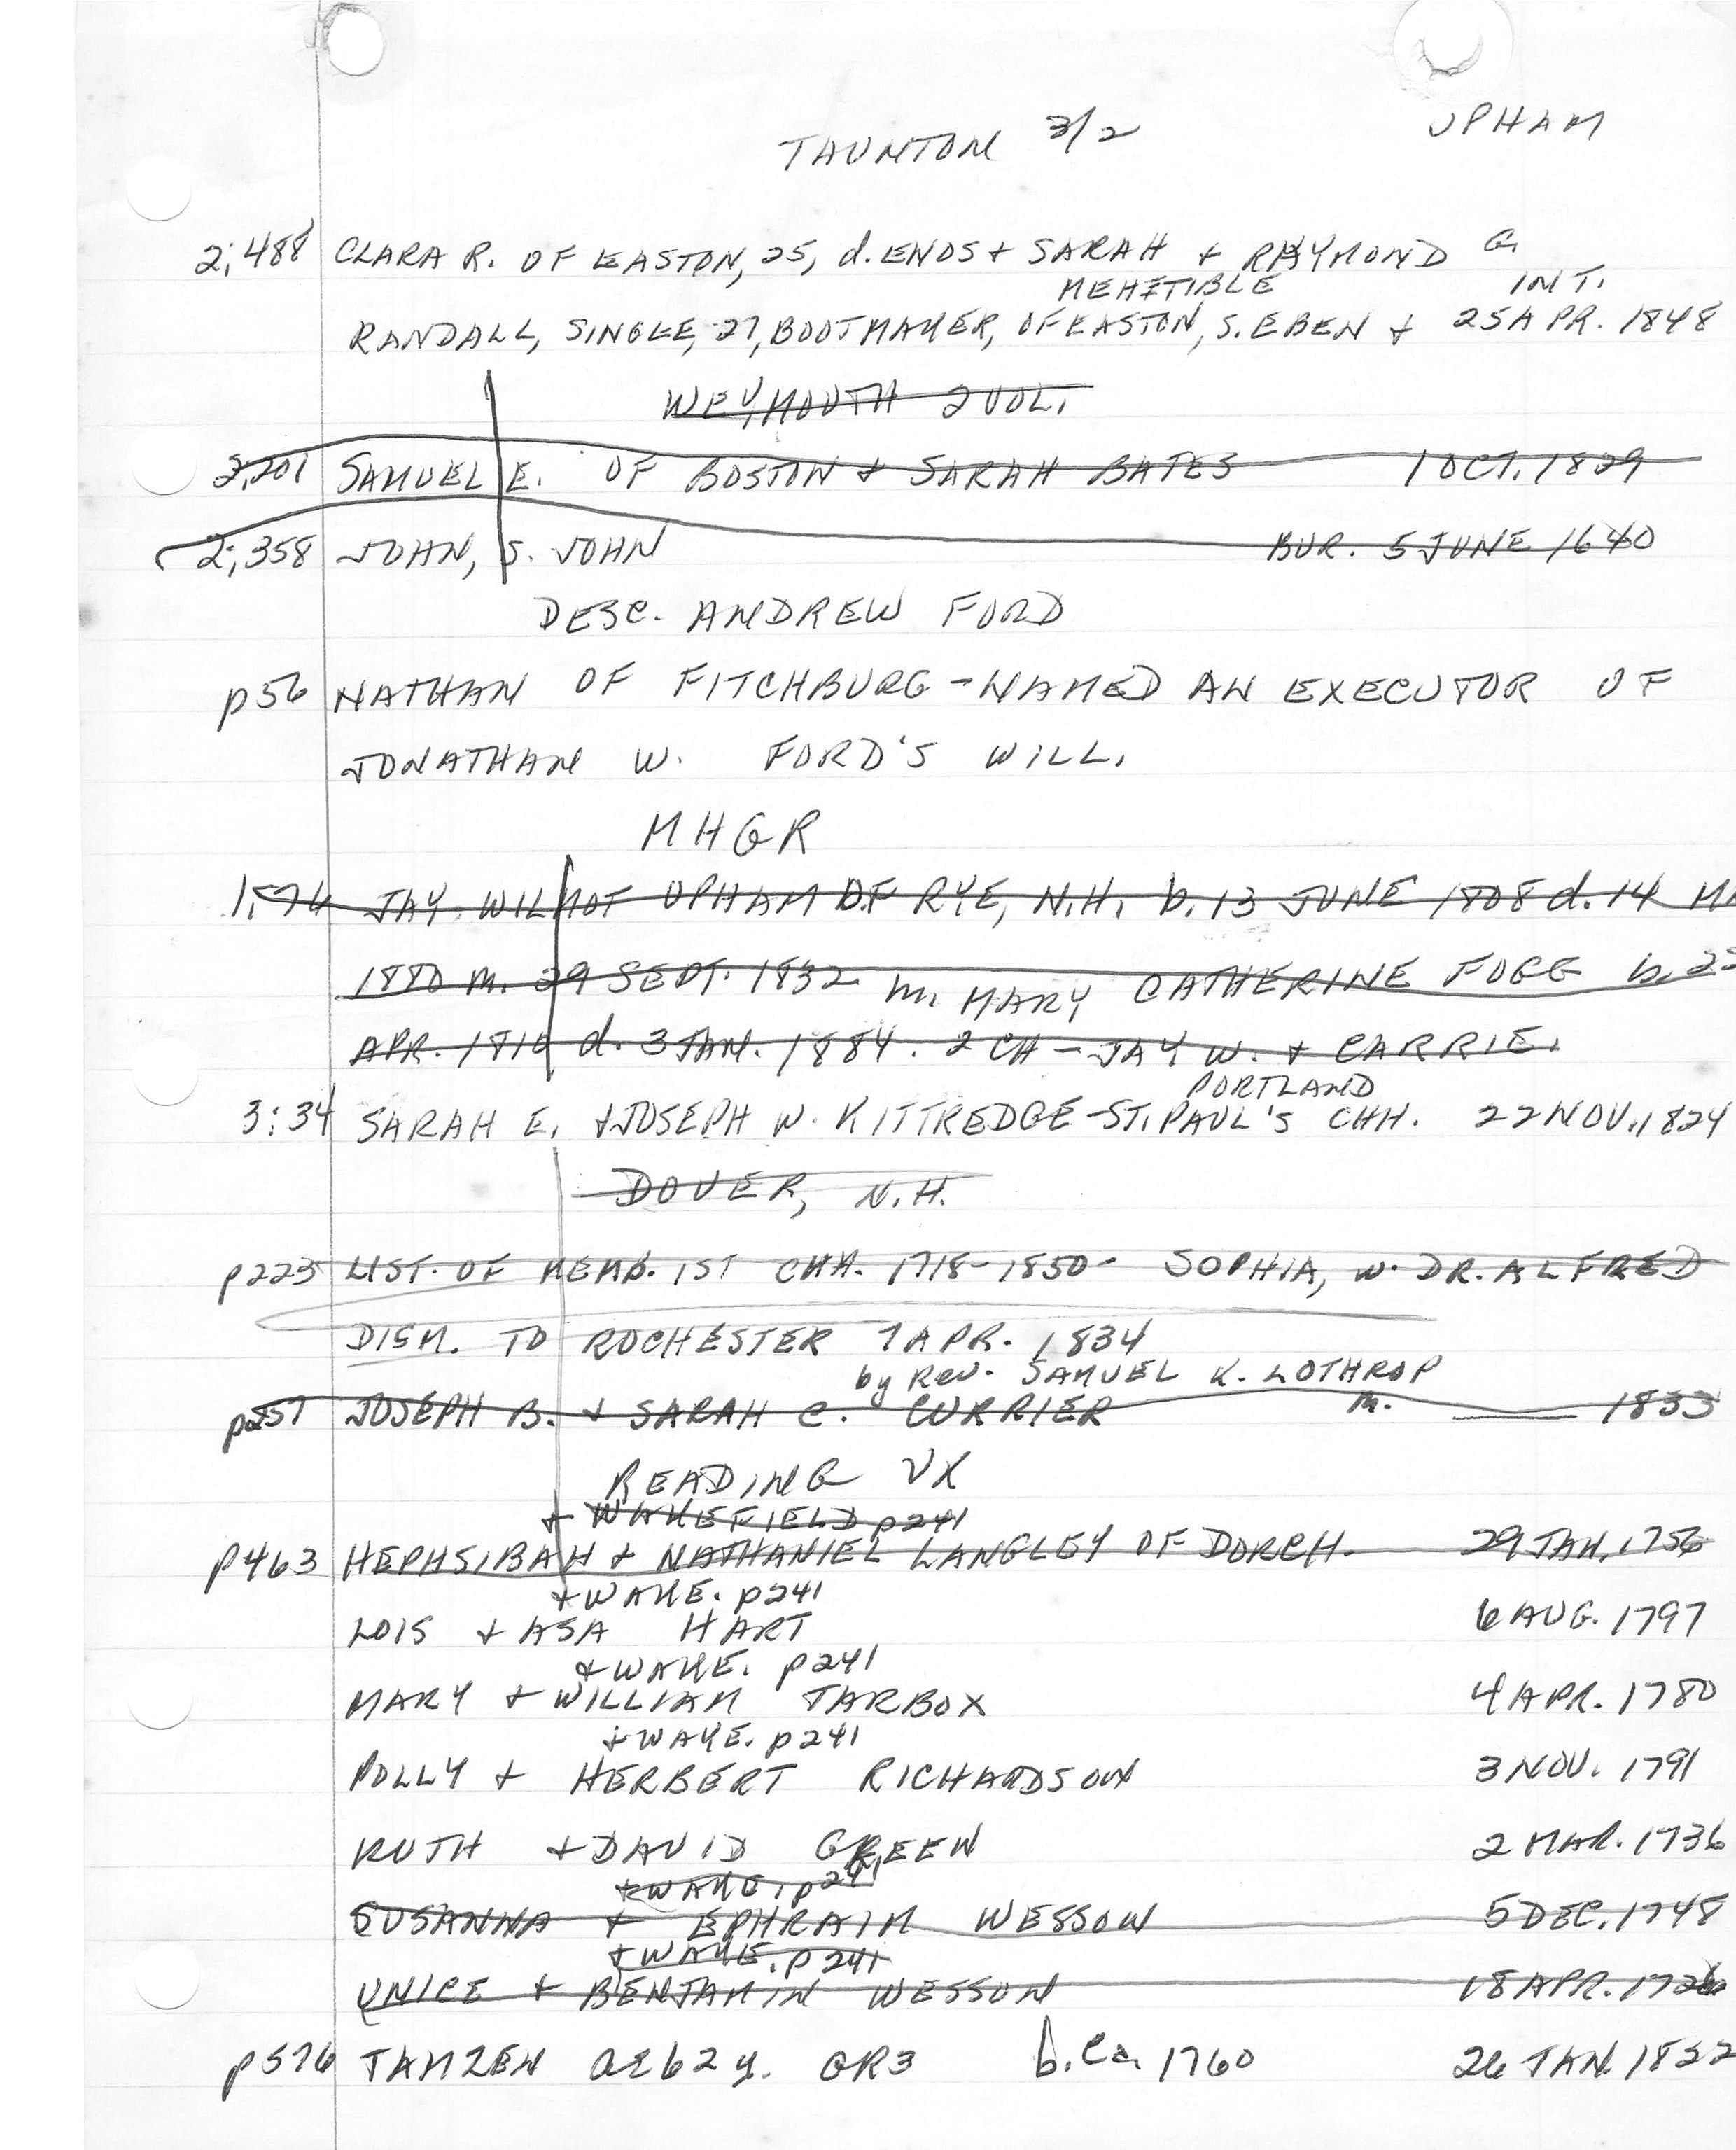 TAUNTON 3/2 UPHAM
2;488 CLARA R. OF EASTON, 25, d. ENOS + SARAH + RAYMOND G.
MEHITIBLE INT.
RANDALL, SINGLE, 27, BOOTMAKER, OF EASTON, S. EBEN + 25 APR. 1848
WEYMOUTH 2 VOL.
2;201 SAMUEL E. OF BOSTON + SARAH BATES 1 OCT. 1829
2;358 JOHN, S. JOHN BUR. 5 JUNE 1640
DESC. ANDREW FORD
p56 NATHAN OF FITCHBURG - NAMED AN EXECUTOR OF
JONATHAN W. FORD'S WILL.
MHGR
JAY WILMOT UPHAM OF RYE, N.H. b. 13 JUNE 1808 d. 14
1880 m. 29 SEPT. 1832 m. MARY CATHERINE FOGG b.
APR. 1810 d. 3 JAN. 1884. 2 CH - JAY W. + CARRIE.
PORTLAND
3:34 SARAH E. + JOSEPH W. KITTREDGE - ST. PAUL'S CHH. 22 NOV. 1824
DOVER, N.H.
p223 LIST. OF MEMB. 1ST CHH. 1718-1850 - SOPHIA, w. DR. ALFRED
DISM. TO ROCHESTER 7 APR. 1834
by Rev. SAMUEL K. LOTHROP
p257 JOSEPH B. + SARAH C. CURRIER m. ____ 1833
READING VR
+ WAKEFIELD p241
p463 HEPHSIBAH + NATHANIEL LANGLEY OF DORCH. 29 JAN. 1756
+ WAKE. p241
LOIS + ASA HART 6 AUG. 1797
+ WAKE. p241
MARY + WILLIAM TARBOX 4 APR. 1780
+ WAKE. p241
POLLY + HERBERT RICHARDSON 3 NOV. 1791
RUTH + DAVID GREEN 2 MAR. 1736
+ WAKE. p241
SUSANNA + EPHRAIM WESSON 5 DEC. 1748
+ WAKE. p241
UNICE + BENJAMIN WESSON 18 APR. 1726
p576 TAMZEN ae 62 y. GR3 b. ca. 1760 26 JAN. 1822